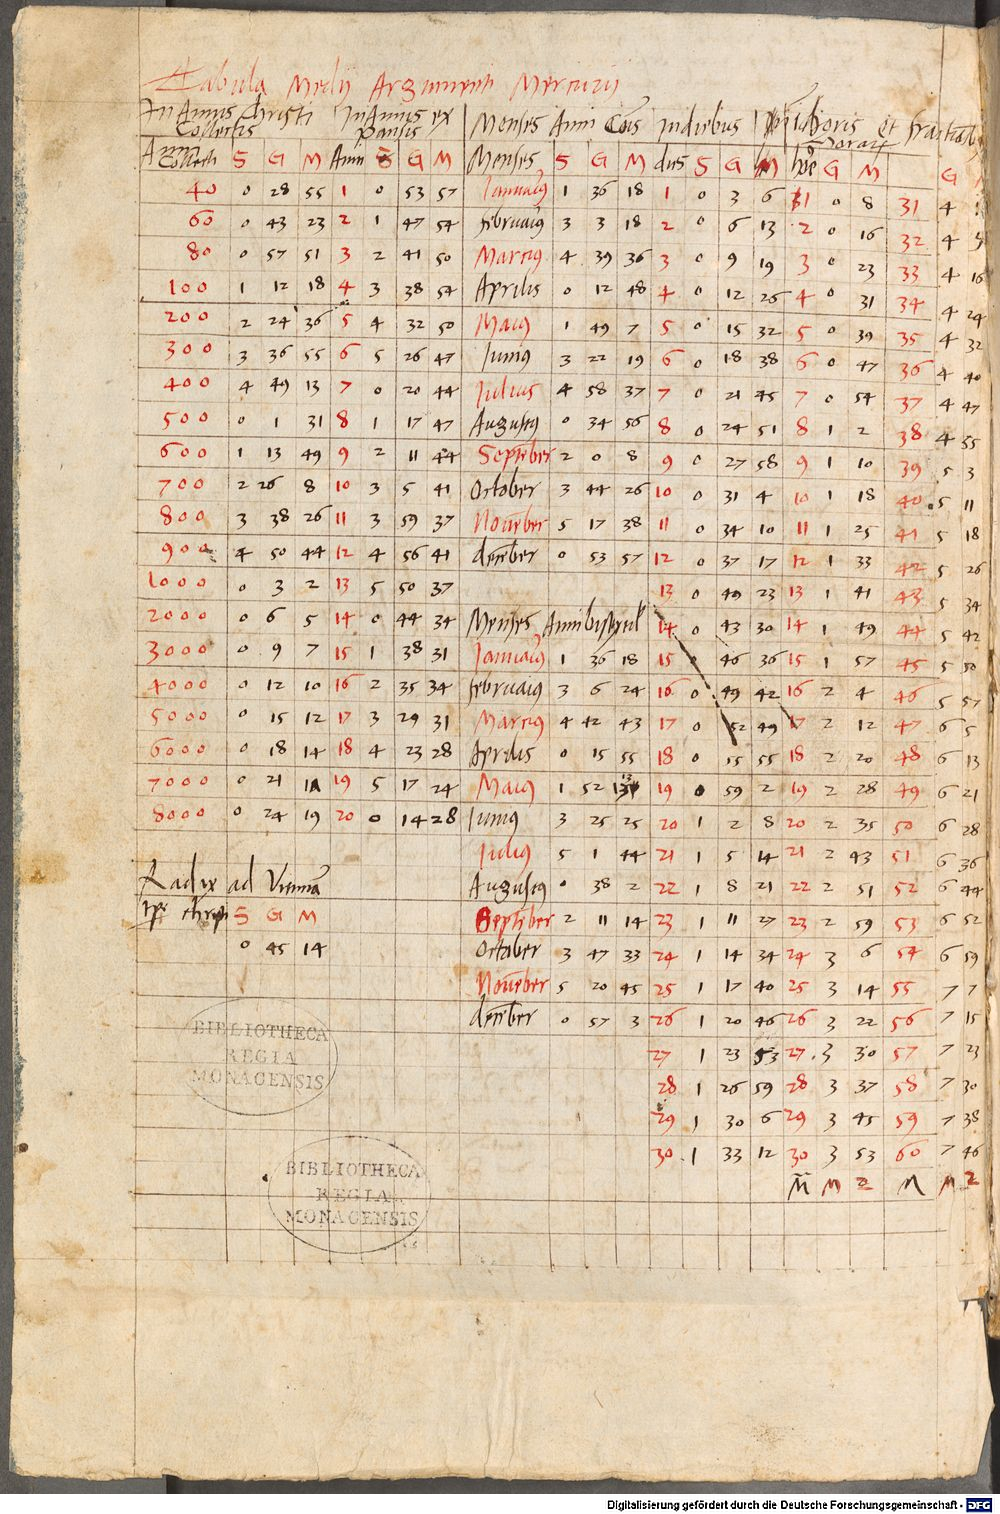 Tabula Medij Argumenti Mercurij
In Annis Christi Collectis In Annis expansis Menses Anni Cõis In diebus In horis et fractionib horarum
Anni Collecti S G M Anni S G M Menses S G M dies S G M hore G M G
40 0 28 55 1 0 53 57 Januarius 1 36 18 1 0 3 6 1 0 8 31 4
60 0 43 23 2 1 47 54 februarius 3 3 18 2 0 6 13 2 0 16 32 4
80 0 57 51 3 2 41 50 Marcius 4 39 36 3 0 9 19 3 0 23 33 4 16
100 1 12 18 4 3 38 54 Aprilis 0 12 48 4 0 12 26 4 0 31 34 4 24
200 2 24 36 5 4 32 50 Maius 1 49 7 5 0 15 32 5 0 39 35 4 32
300 3 36 55 6 5 26 47 Junius 3 22 19 6 0 18 38 6 0 47 36 4 40
400 4 49 13 7 0 20 44 Julius 4 58 37 7 0 21 45 7 0 54 37 4 47
500 0 1 31 8 1 17 47 Augustus 0 34 56 8 0 24 51 8 1 2 38 4 55
600 1 13 49 9 2 11 44 September 2 0 8 9 0 27 58 9 1 10 39 5 3
700 2 26 8 10 3 5 41 October 3 44 26 10 0 31 4 10 1 18 40 5 11
800 3 38 26 11 3 59 37 November 5 17 38 11 0 34 10 11 1 25 41 5 18
900 4 50 44 12 4 56 41 december 0 53 57 12 0 37 17 12 1 33 42 5 26
1000 0 3 2 13 5 50 37 13 0 49 23 13 1 41 43 5 34
2000 0 6 5 14 0 44 34 Menses Anni bisextil 14 0 43 30 14 1 49 44 5 42
3000 0 9 7 15 1 38 31 Januarius 1 36 18 15 0 46 36 15 1 57 45 5 50
4000 0 12 10 16 2 35 34 februarius 3 6 24 16 0 49 42 16 2 4 46 5 57
5000 0 15 12 17 3 29 31 Marcius 4 42 43 17 0 52 49 17 2 12 47 6 5
6000 0 18 14 18 4 23 28 Aprilis 0 15 55 18 0 55 55 18 2 20 48 6 13
7000 0 21 17 19 5 17 24 Maius 1 52 13 19 0 59 2 19 2 28 49 6 21
8000 0 24 19 20 0 14 28 Junius 3 25 25 20 1 2 8 20 2 35 50 6 28
Julius 5 1 44 21 1 5 14 21 2 43 51 6 36
Radix ad Viennam Augustus 0 38 2 22 1 8 21 22 2 51 52 6 44
S G M September 2 11 14 23 1 11 27 23 2 59 53 6 52
0 45 14 October 3 47 33 24 1 14 34 24 3 6 54 6 59
November 5 20 45 25 1 17 40 25 3 14 55 7 7
december 0 57 3 26 1 20 46 26 3 22 56 7 15
27 1 23 53 27 3 30 57 7 23
28 1 26 59 28 3 37 58 7 30
29 1 30 6 29 3 45 59 7 38
30 1 33 12 30 3 53 60 7 46
M M 2 M M 2
BIBLIOTHECA
REGIA
MONACENSIS
BIBLIOTHECA
REGIA
MONACENSIS
Digitalisierung gefördert durch die Deutsche Forschungsgemeinschaft - DFG